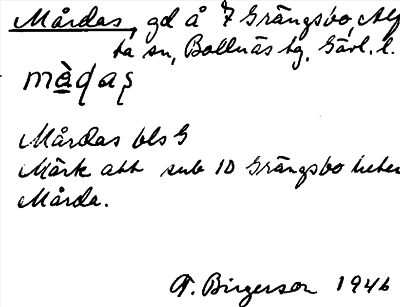 Mårdas, gd å 7 Grängsbo, Alf
ta sn, Bollnäs tg. Gävl. l.
mȧ̀das
Mårdas bls G
Märk att sub 10 Grängsbo heter
Mårda.
T. Birgerson 1946